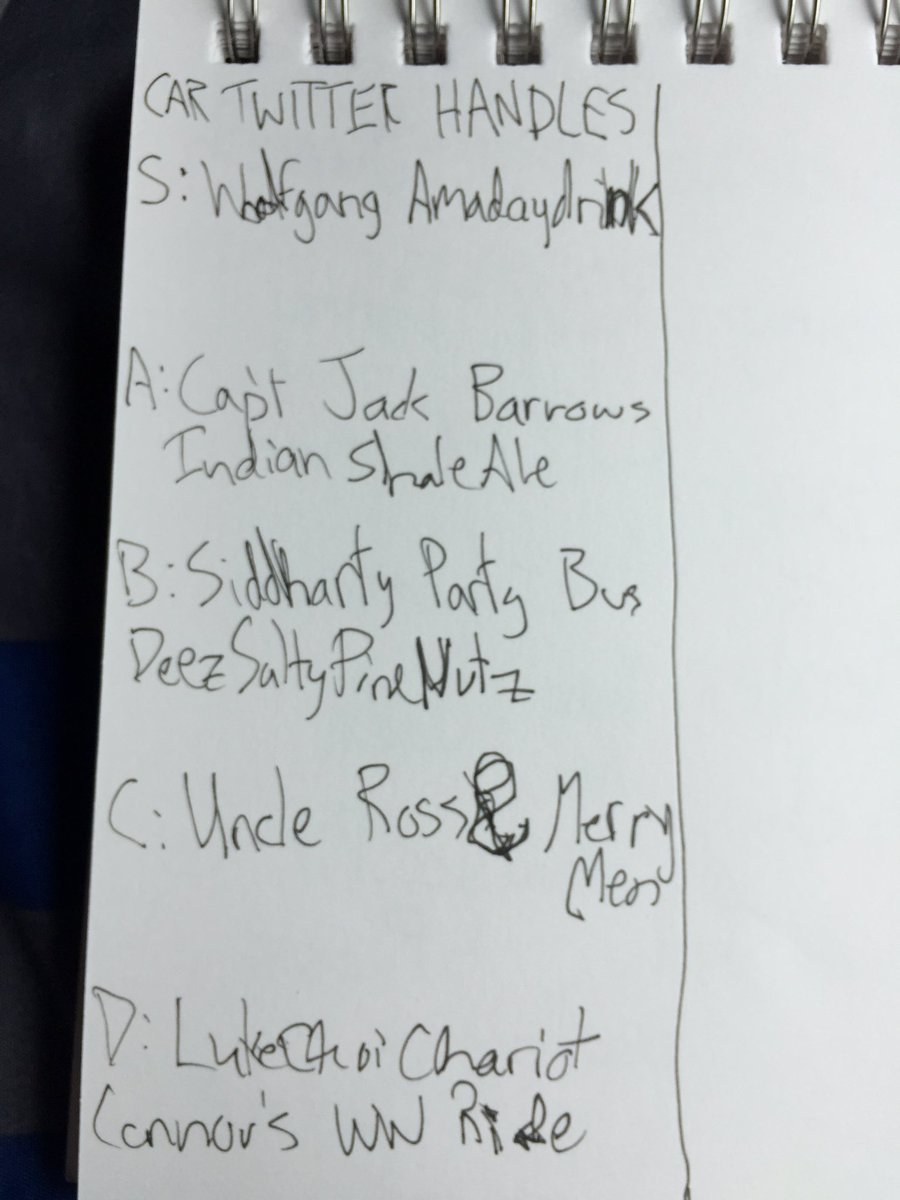 CAR TWITTER HANDLES
S: Wolfgang Amadaydrink
A: Cap't Jack Barrows
Indian Shale Ale
B: Siddharty Party Bus
DeezSaltyPineNutz
C: Uncle Ross Merry
Men
D: LukeChoiChariot
Connor's WW Ride